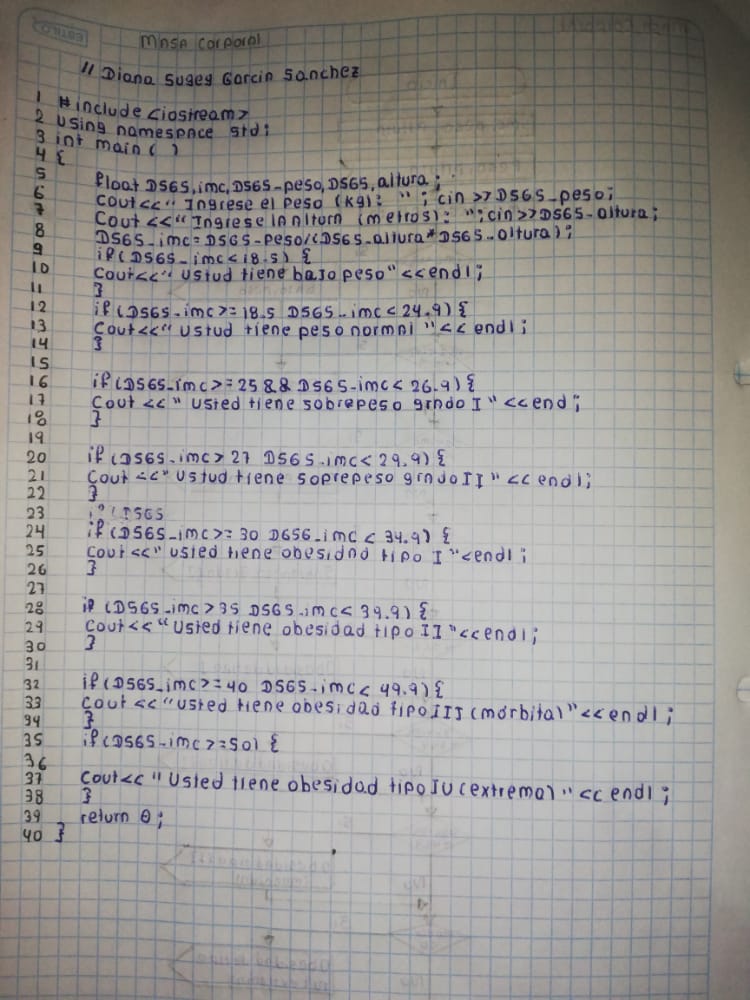 Masa Corporal
// Diana Sugey Garcia Sanchez
1 #include <iostream>
2 Using namespace std;
3 int main( )
4 {
5 float DSGS,imc,DSGS-peso,DSGS,altura;
6 Cout<<" Ingrese el Peso (Kg): " ; cin >>DSGS_peso;
7 Cout<<"Ingrese la altura (metros): ";cin>>DSGS-altura;
8 DSGS_imc=DSGS-Peso/(DSGS_altura*DSGS_altura);
9 if(DSGS_imc<18.5) {
10 Cout<<" ustud tiene bajo peso"<<endl;
11 }
12 if(DSGS_imc>=18.5 DSGS_imc<24.9){
13 Cout<<" ustud tiene peso normal "<< endl;
14 }
15
16 if(DSGS_imc>=25 && DSGS-imc< 26.9){
17 Cout <<" usted tiene sobrepeso grado I"<<end;
18 }
19
20 if(DSGS_imc>27 DSGS_imc<29.9){
21 Cout <<" ustud tiene soprepeso grado II"<< endl;
22 }
23 if(DSGS
24 if(DSGS_imc>=30 DGSG_imc < 34.9) {
25 Cout<<" usted tiene obesidad tipo I "<endl;
26 }
27
28 if (DSGS_imc>35 DSGS_imc< 39.9){
29 Cout<<"Usted tiene obesidad tipo II"<<endl;
30 }
31
32 if(DSGS_imc>=40 DSGS-imc< 49.9){
33 Cout <<"usted tiene obesidad tipo III(morbita)"<<endl;
34 }
35 if(DSGS_imc>=50) {
36
37 Cout<<" Usted tiene obesidad tipo IV(extrema) "<< endl;
38 }
39 return 0;
40 }